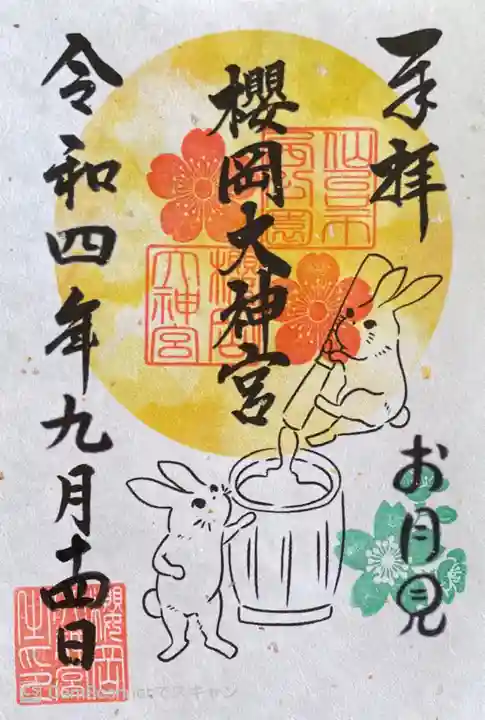 奉拝
お月見
櫻岡大神宮
仙台市
西公園
櫻岡
大神宮
令和四年九月十四日
CamScannerでスキャン